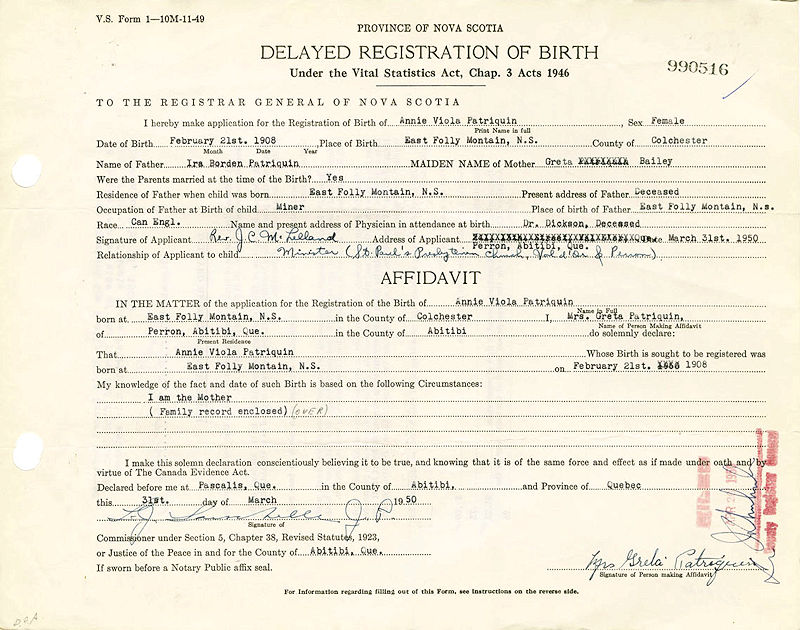 V.S. Form 1—10M-11-49
PROVINCE OF NOVA SCOTIA
DELAYED REGISTRATION OF BIRTH
Under the Vital Statistics Act, Chap. 3 Acts 1946
990516
TO THE REGISTRAR GENERAL OF NOVA SCOTIA
I hereby make application for the Registration of Birth of Annie Viola Patriquin, Sex Female
Print Name in full
Date of Birth February 21st. 1908 Place of Birth East Folly Montain, N.S. County of Colchester
Month Date Year
Name of Father Ira Borden Patriquin MAIDEN NAME of Mother Greta Bailey
Were the Parents married at the time of the Birth? Yes
Residence of Father when child was born East Folly Montain, N.S. Present address of Father Deceased
Occupation of Father at Birth of child Miner Place of birth of Father East Folly Montain, N.s.
Race Can Engl. Name and present address of Physician in attendance at birth Dr. Dickson, Deceased
Signature of Applicant Rev. J. C. McLelland Address of Applicant Perron, Abitibi, Que. March 31st. 1950
Relationship of Applicant to child Minister (St. Paul's Presbyterian Church, Val d'Or & Perron)
AFFIDAVIT
IN THE MATTER of the application for the Registration of the Birth of Annie Viola Patriquin
Name in Full
born at East Folly Montain, N.S. in the County of Colchester I, Mrs. Greta Patriquin,
Name of Person Making Affidavit
of Perron, Abitibi, Que. in the County of Abitibi do solemnly declare:
Present Residence
That Annie Viola Patriquin Whose Birth is sought to be registered was
born at East Folly Montain, N.S. on February 21st. 1908
My knowledge of the fact and date of such Birth is based on the following Circumstances:
I am the Mother
( Family record enclosed) (OVER)
I make this solemn declaration conscientiously believing it to be true, and knowing that it is of the same force and effect as if made under oath and by
virtue of The Canada Evidence Act.
Declared before me at Pascalis, Que. in the County of Abitibi, and Province of Quebec
this 31st. day of March 1950
J. P.
Signature of
Commissioner under Section 5, Chapter 38, Revised Statutes, 1923,
or Justice of the Peace in and for the County of Abitibi, Que.
If sworn before a Notary Public affix seal.
Mrs Greta Patriquin
Signature of Person making Affidavit
For Information regarding filling out of this Form, see instructions on the reverse side.